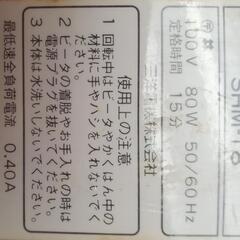 定格時間 15分
100V 80W 50/60Hz
株式会社
使用上の注意
1 回転中はビータやかくはん中の
材料に手やハシを入れないで
2 ビータの着脱やお手入れの時は
電源プラグを抜いてください。
3 本体は水洗いしないでください。
最低速全負荷電流 0.40A